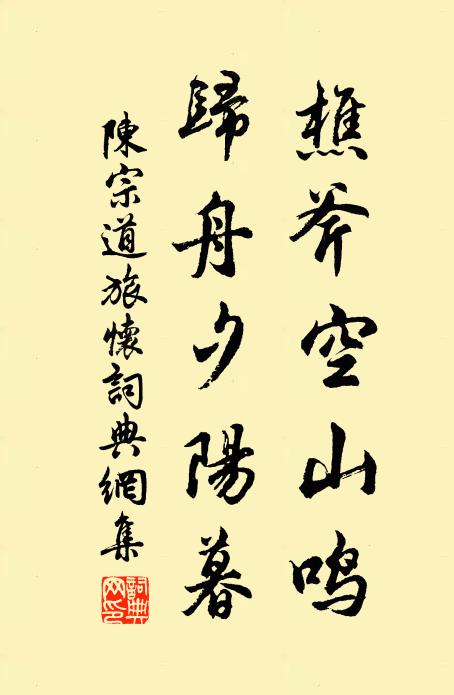 樵斧空山鸣
歸舟夕陽暮
陳宗道旅懷詞典網集
詞典网印